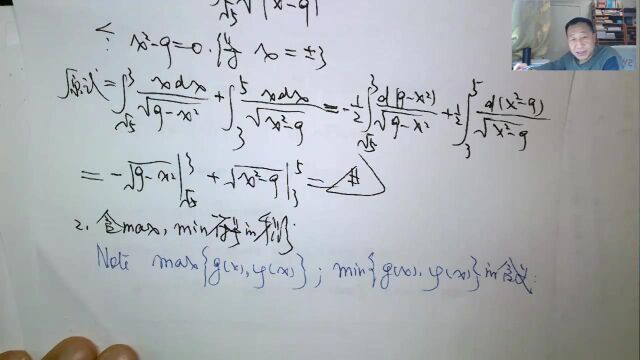 √5 √|x²-9|
∵ x²-9=0 得 x=±3
原式=∫_{√5}^{3} xdx/√(9-x²) + ∫_{3}^{5} xdx/√(x²-9) = -1/2 ∫_{√5}^{3} d(9-x²)/√(9-x²) + 1/2 ∫_{3}^{5} d(x²-9)/√(x²-9)
= -√(9-x²) |_{√5}^{3} + √(x²-9) |_{3}^{5} =
2. 含max, min 积
Note max{g(x), φ(x)} ; min{g(x), φ(x)} 含义: